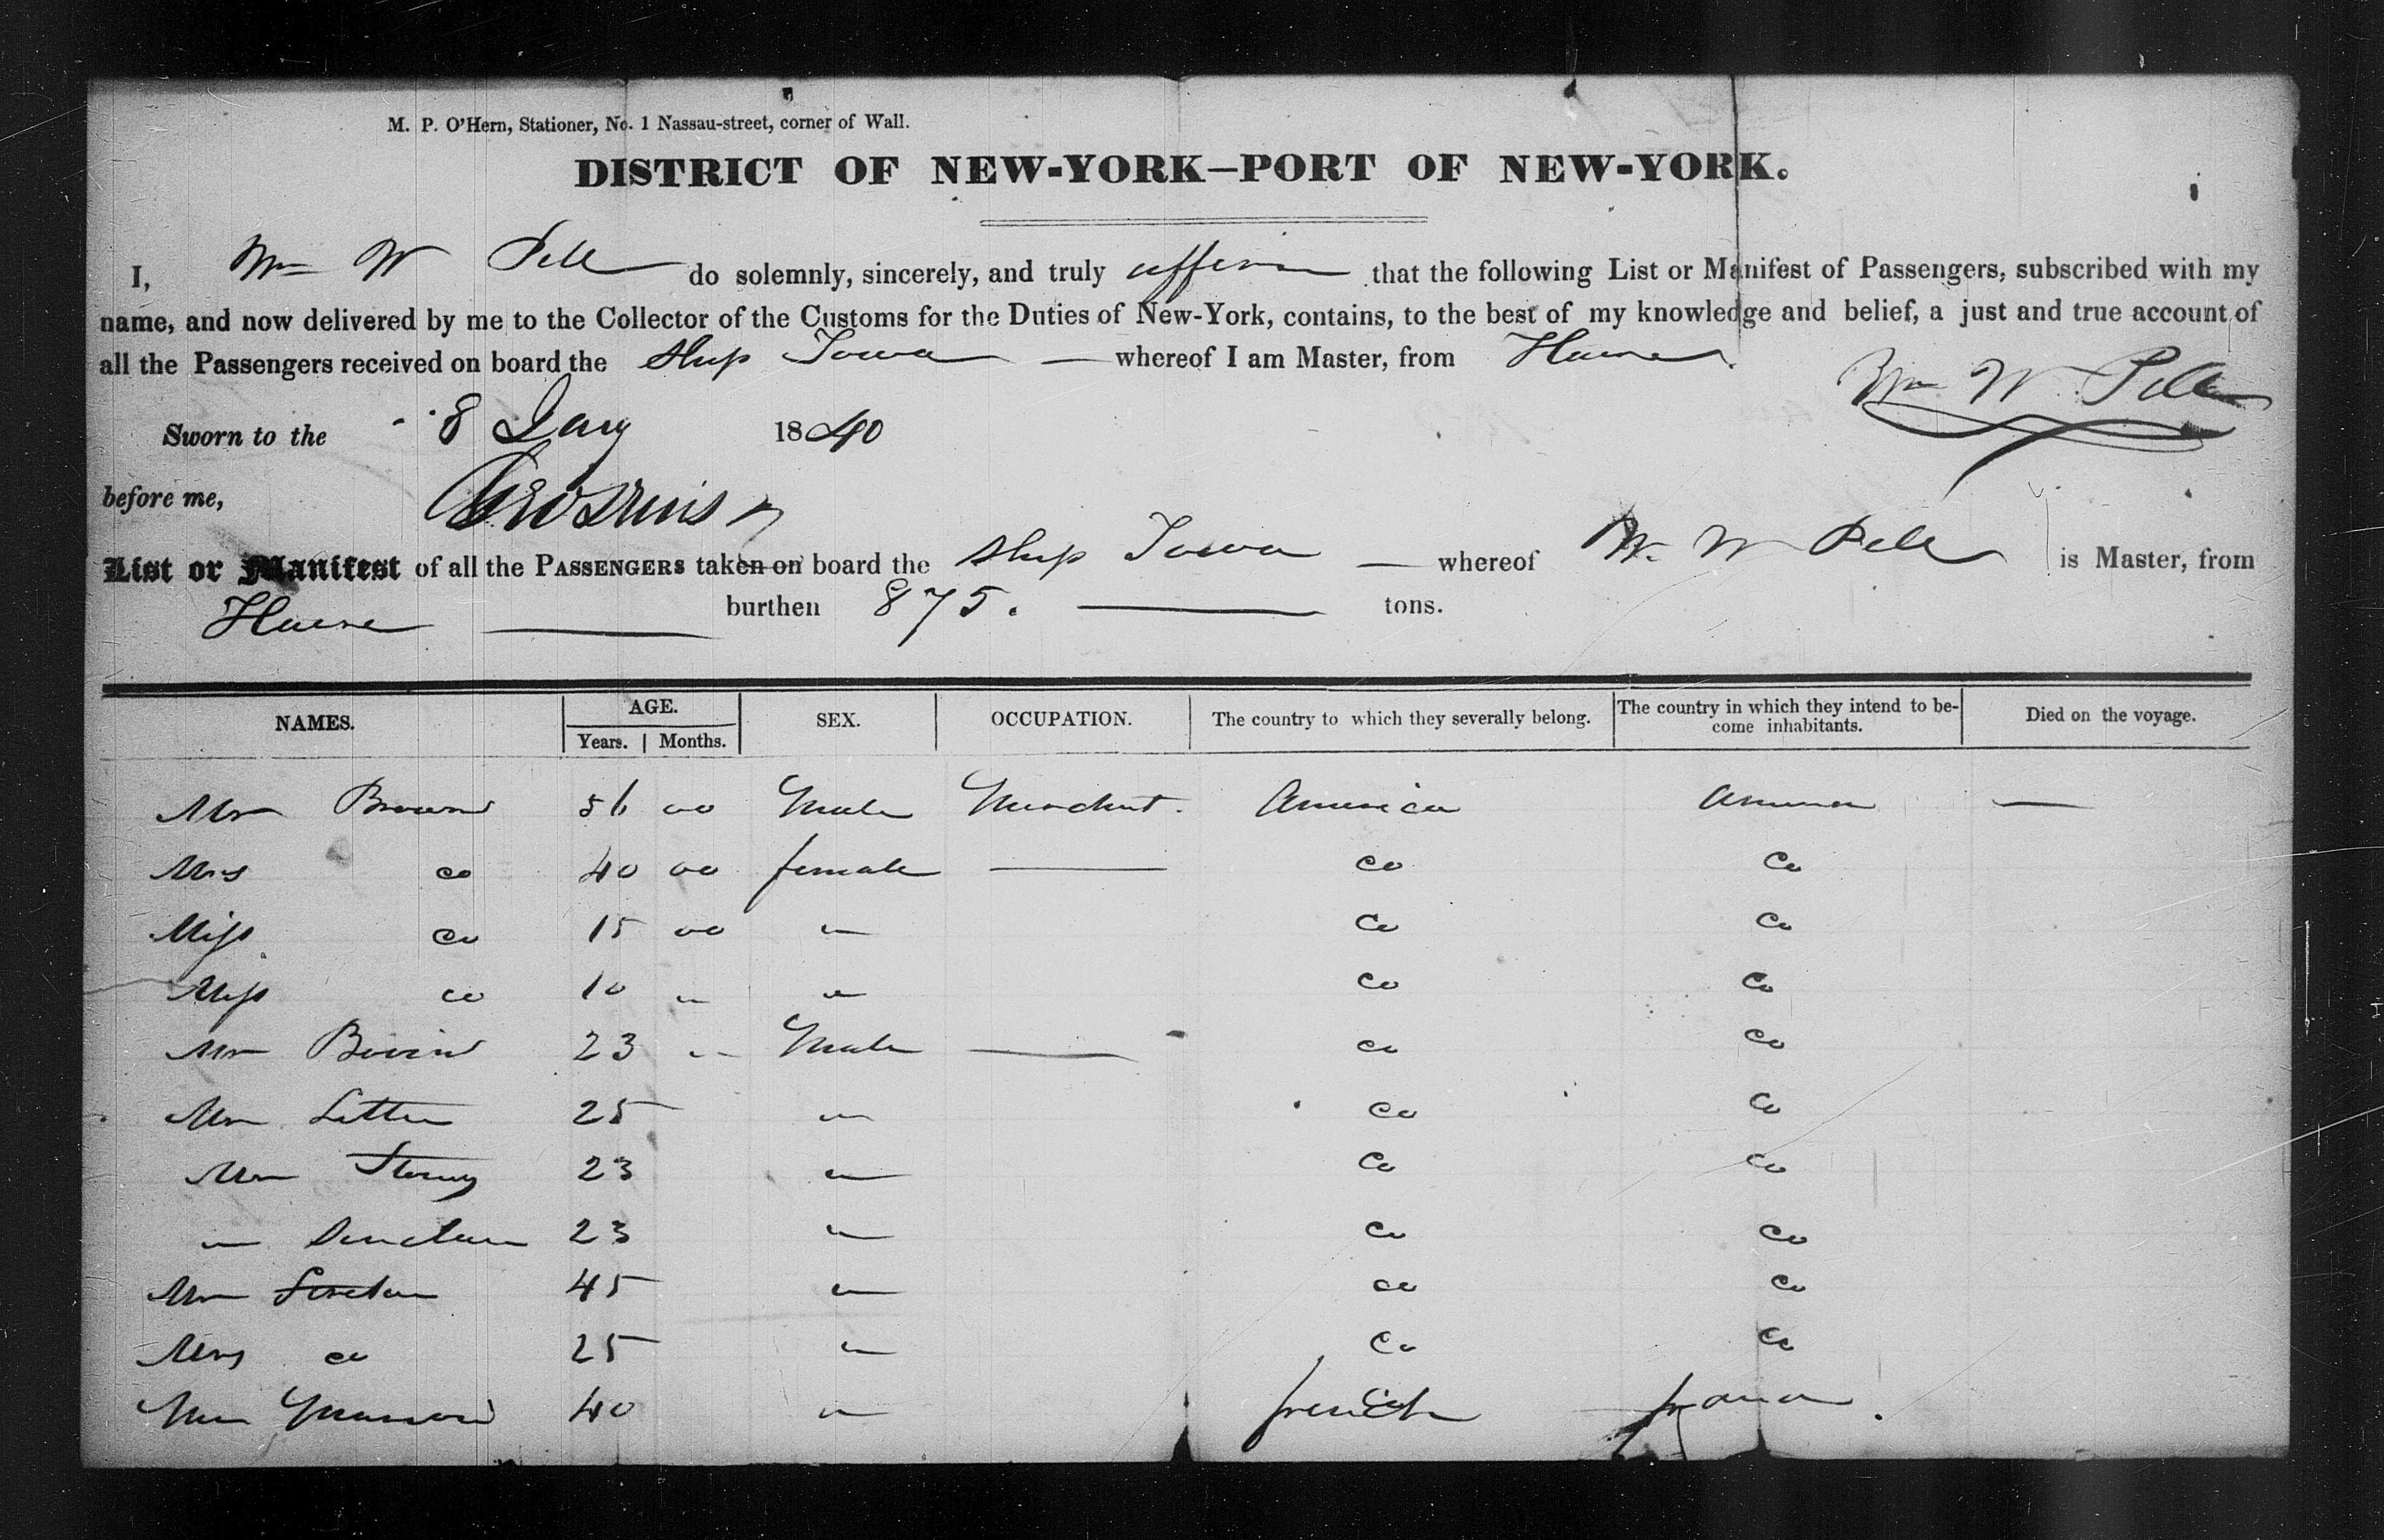 M. P. O'Hern, Stationer, No. 1 Nassau-street, corner of Wall.
DISTRICT OF NEW-YORK—PORT OF NEW-YORK.
I, Wm W Pell do solemnly, sincerely, and truly affirm that the following List or Manifest of Passengers, subscribed with my
name, and now delivered by me to the Collector of the Customs for the Duties of New-York, contains, to the best of my knowledge and belief, a just and true account of
all the Passengers received on board the Ship Iowa — whereof I am Master, from Havre.
Wm W. Pell
Sworn to the 8 Jany 1840
before me,
List or Manifest of all the PASSENGERS taken on board the Ship Iowa — whereof W. W Pell is Master, from
Havre — burthen 875. — tons.
NAMES. AGE. SEX. OCCUPATION. The country to which they severally belong. The country in which they intend to be-come inhabitants. Died on the voyage.
Years. Months.
Mr Brown 56 00 Male Merchant. America America —
Mrs Do 40 00 female — Do Do
Miss Do 15 00 " Do Do
Miss Do 10 " " Do Do
Mr 23 " Male — Do Do
Mr 25 " Do Do
Mr 23 " Do Do
" 23 " Do Do
Mr 45 " Do Do
Mrs Do 25 " Do Do
40 " french france.